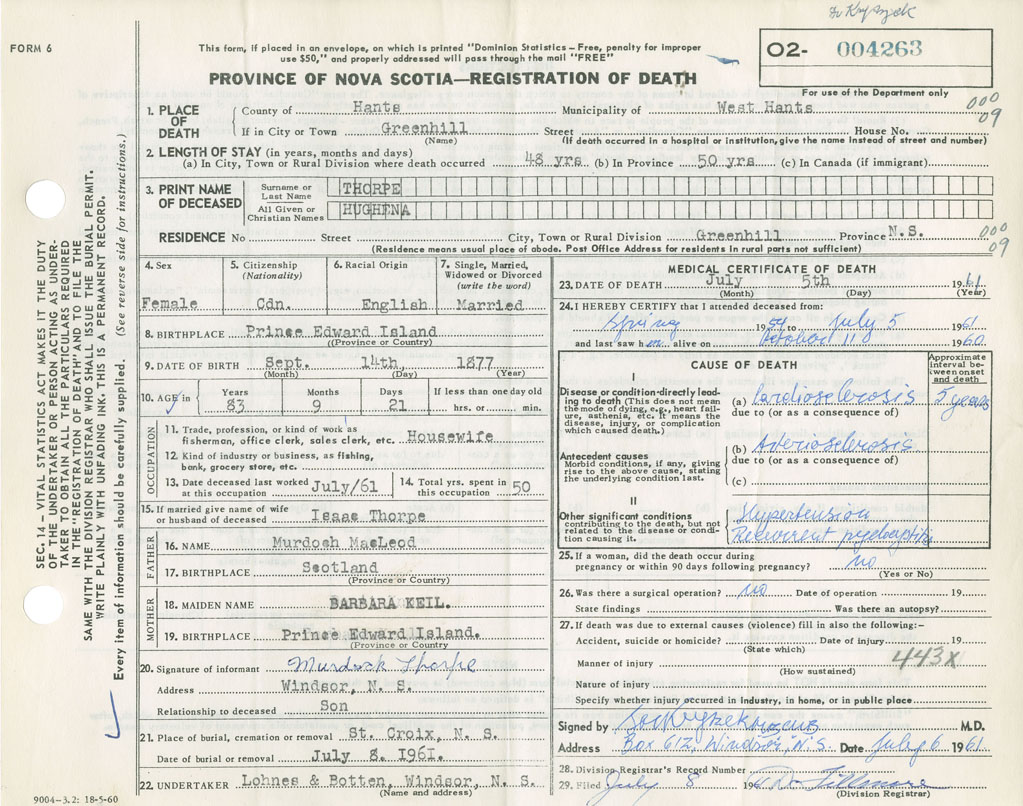 Dr Kryszek
FORM 6
This form, if placed in an envelope, on which is printed "Dominion Statistics – Free, penalty for improper
use $50," and properly addressed will pass through the mail "FREE"
O2- 004263
For use of the Department only
PROVINCE OF NOVA SCOTIA—REGISTRATION OF DEATH
000
09
1. PLACE OF DEATH County of Hants Municipality of West Hants
If in City or Town Greenhill Street House No.
(Name) (If death occurred in a hospital or institution, give the name instead of street and number)
2. LENGTH OF STAY (in years, months and days)
(a) In City, Town or Rural Division where death occurred 48 yrs (b) In Province 50 yrs. (c) In Canada (if immigrant)
3. PRINT NAME OF DECEASED
Surname or Last Name THORPE
All Given or Christian Names HUGHENA
000
09
RESIDENCE No Street City, Town or Rural Division Greenhill Province N.S.
(Residence means usual place of abode. Post Office Address for residents in rural parts not sufficient)
4. Sex Female
5. Citizenship (Nationality) Cdn.
6. Racial Origin English
7. Single, Married, Widowed or Divorced (write the word) Married
8. BIRTHPLACE Prince Edward Island
(Province or Country)
9. DATE OF BIRTH Sept. 14th, 1877
(Month) (Day) (Year)
10. AGE in Years 83 Months 9 Days 21 If less than one day old hrs. or min.
OCCUPATION
11. Trade, profession, or kind of work as
fisherman, office clerk, sales clerk, etc. Housewife
12. Kind of industry or business, as fishing,
bank, grocery store, etc.
13. Date deceased last worked at this occupation July/61
14. Total yrs. spent in this occupation 50
15. If married give name of wife
or husband of deceased Isaac Thorpe
FATHER
16. NAME Murdoch MacLeod
17. BIRTHPLACE Scotland
(Province or Country)
MOTHER
18. MAIDEN NAME BARBARA KEIL.
19. BIRTHPLACE Prince Edward Island.
(Province or Country
20. Signature of informant Murdock Thorpe
Address Windsor, N. S.
Relationship to deceased Son
21. Place of burial, cremation or removal St. Croix, N. S.
Date of burial or removal July 8. 1961.
22. UNDERTAKER Lohnes & Botten, Windsor, N. S.
(Name and address)
MEDICAL CERTIFICATE OF DEATH
23. DATE OF DEATH July 5th 1961
(Month) (Day) (Year)
24. I HEREBY CERTIFY that I attended deceased from:
Spring 1959 to July 5 1961
and last saw her alive on October 110 1960
CAUSE OF DEATH
Approximate interval between onset and death
I
Disease or condition directly leading to death (This does not mean the mode of dying, e.g., heart failure, asthenia, etc. It means the disease, injury, or complication which caused death.)
(a) Cardiosclerosis 5 years
due to (or as a consequence of)
Antecedent causes
Morbid conditions, if any, giving rise to the above cause, stating the underlying condition last.
(b) Arteriosclerosis
due to (or as a consequence of)
(c)
II
Other significant conditions
contributing to the death, but not related to the disease or condition causing it.
Hypertension
Recurrent pyelocystitis
25. If a woman, did the death occur during
pregnancy or within 90 days following pregnancy? no
(Yes or No)
26. Was there a surgical operation? no Date of operation 19
State findings Was there an autopsy?
27. If death was due to external causes (violence) fill in also the following:–
Accident, suicide or homicide? Date of injury 19
(State which)
443X
Manner of injury
(How sustained)
Nature of injury
Specify whether injury occurred in industry, in home, or in public place
Signed by M.D.
Address Box 612, Windsor, N.S. Date July 6 1961
28. Division Registrar's Record Number
29. Filed July 8 196 Fillmore
(Division Registrar)
SEC. 14 – VITAL STATISTICS ACT MAKES IT THE DUTY
OF THE UNDERTAKER OR PERSON ACTING AS UNDER-
TAKER TO OBTAIN ALL THE PARTICULARS REQUIRED
IN THE "REGISTRATION OF DEATH" AND TO FILE THE
SAME WITH THE DIVISION REGISTRAR WHO SHALL ISSUE THE BURIAL PERMIT.
WRITE PLAINLY WITH UNFADING INK. THIS IS A PERMANENT RECORD.
Every item of information should be carefully supplied. (See reverse side for instructions.)
9004–3.2: 18-5-60